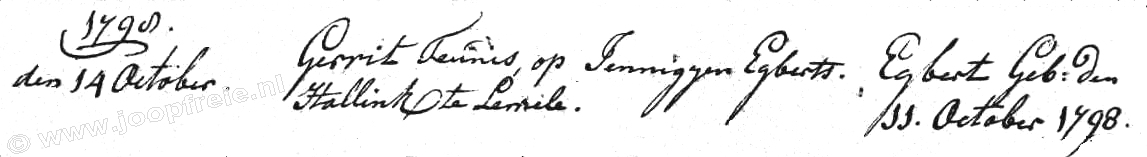 1798.
den 14 October. Gerrit Teunis, op Jennigjen Egberts. Egbert Geb: den
Hallink te Lemele. 11. October 1798.
© www.joopfreie.nl